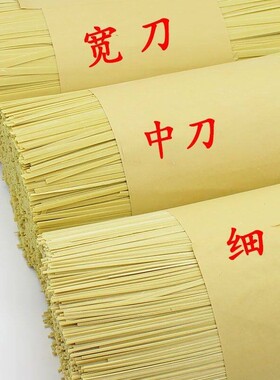 宽刀
中刀
细